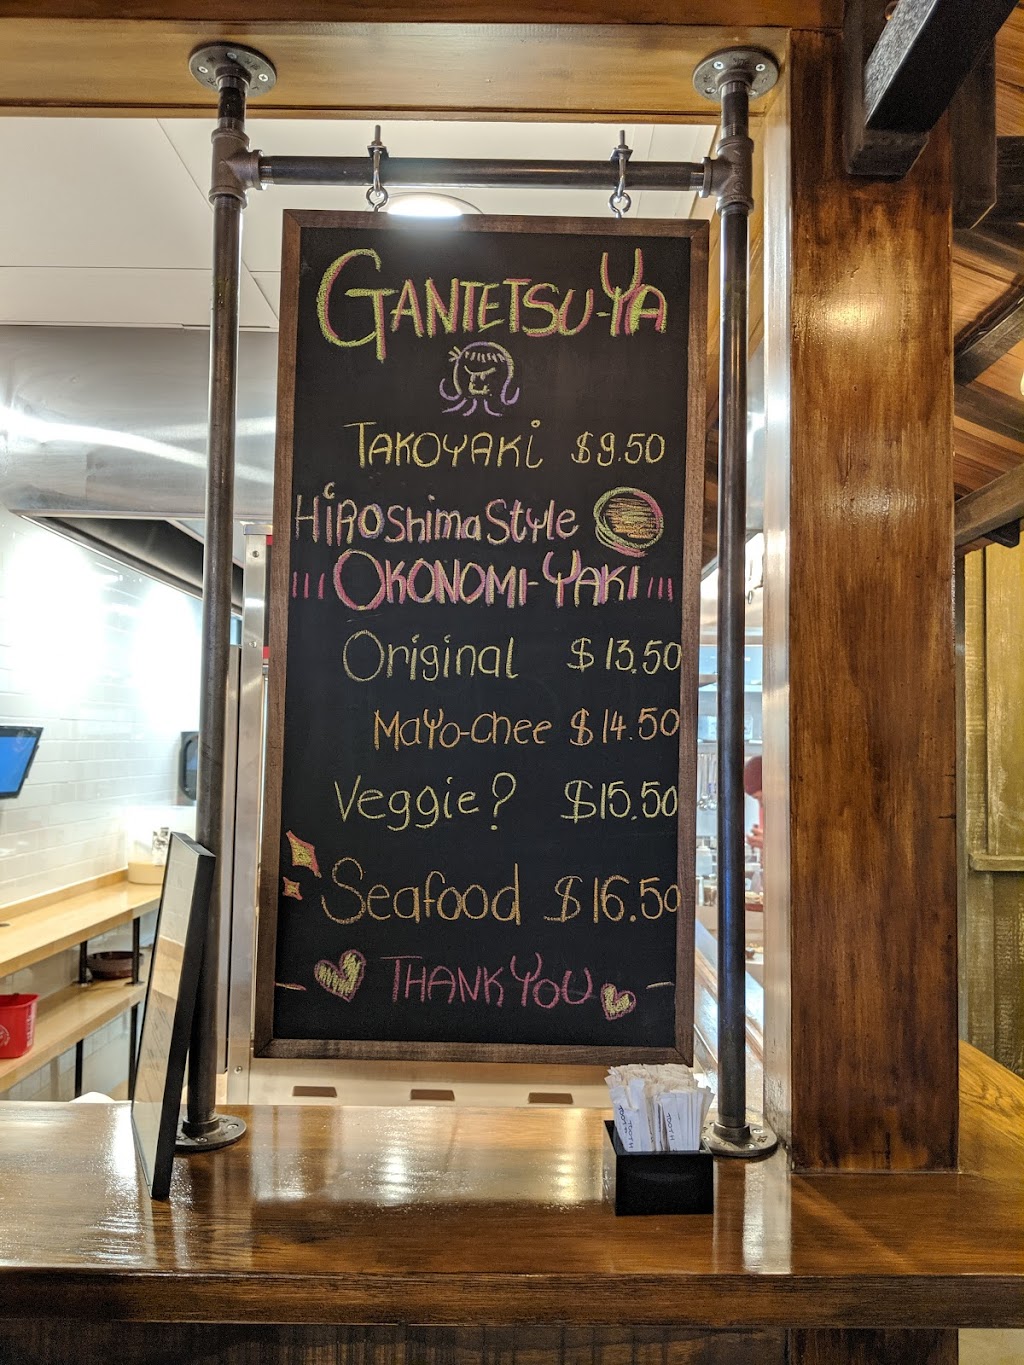 GANTETSU-YA
TAKOYAKi $9.50
HiROShimaStyle
OKONOMI-YAKI
Original $13.50
MaYo-chee $14.50
Veggie? $15.50
Seafood $16.50
THANK YOU